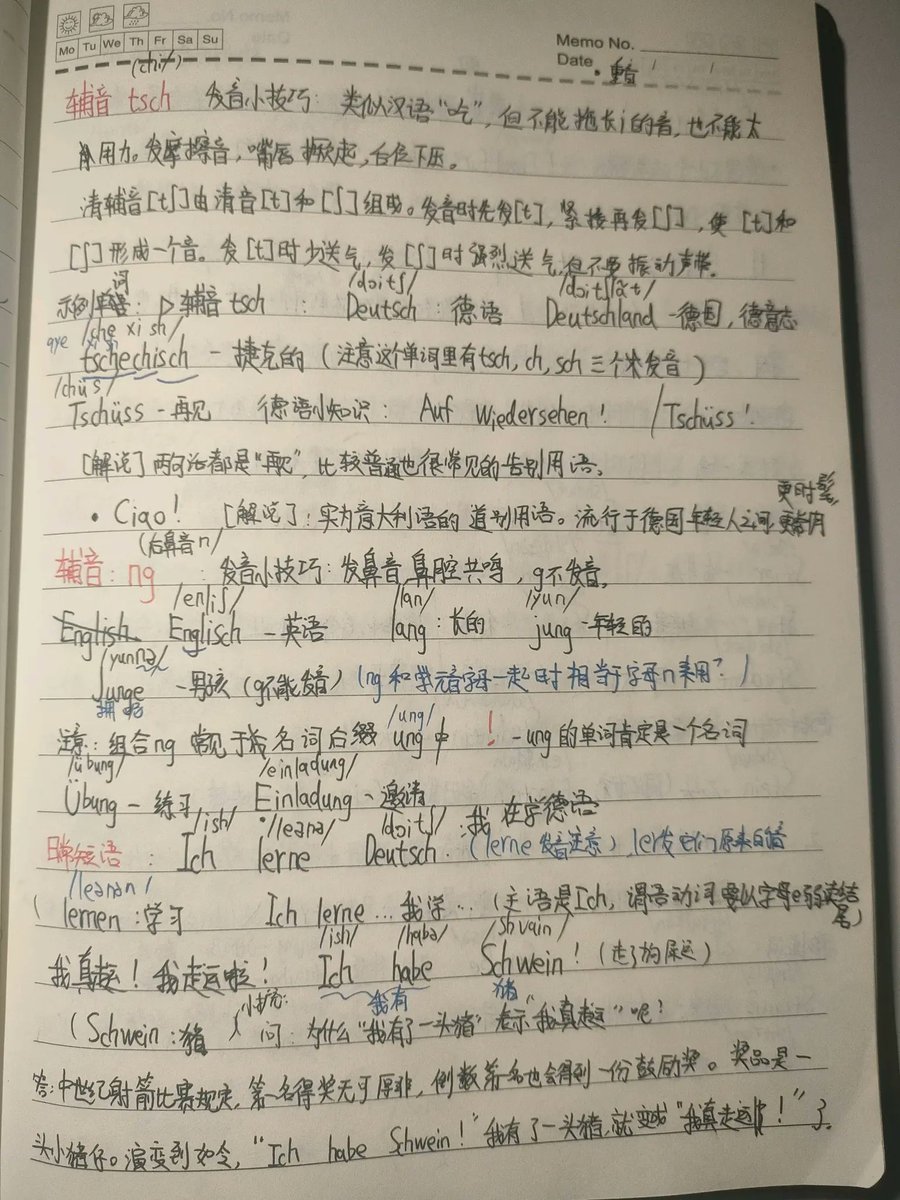 Mo Tu We Th Fr Sa Su
Memo No.
Date
(chi/)
• 重音
辅音 tsch 发音小技巧: 类似汉语“吃”, 但不能拖长i的音, 也不能太
用力。发摩擦音, 嘴唇撅起, 舌位下压。
清辅音[tʃ]由清音[t]和[ʃ]组成。发音时先发[t], 紧接再发[ʃ], 使[t]和
[ʃ]形成一个音。发[t]时少送气, 发[ʃ]时强烈送气, 但不要振动声带。
词 /dɔitʃ/ /dɔitʃlat/
示例单: ▷ 辅音 tsch : Deutsch: 德语 Deutschland - 德国, 德意志
/che xi sh/
tschechisch - 捷克的 (注意这个单词里有tsch, ch, sch 三个发音)
/chüs/
Tschüss - 再见 德语小知识: Auf Wiedersehen! / Tschüss!
[解说] 两句话都是“再见”, 比较普通也很常见的告别用语。
更时髦,
• Ciao! [解说]: 实为意大利语的道别用语。流行于德国年轻人之间 更常用
(后鼻音n/
辅音: ng : 发音小技巧: 发鼻音, 鼻腔共鸣, g不发音。
/enliʃ/ /lan/ /yun/
English Englisch - 英语 lang: 长的 jung - 年轻的
/yunnə/
Junge - 男孩 (g不能发音) (ng和单元音字母一起时相当于字母n来用?)
/ung/
注意: 组合ng 常见于名词后缀 ung中 ! -ung的单词肯定是一个名词
/übung/ /einladung/
Übung - 练习 Einladung - 邀请
/ish/ /leanə/ /dɔitʃ/ : 我在学德语
日常短语: Ich lerne Deutsch. (lerne 发音注意) ler发它们原来的音
/leanən/
(lernen: 学习 Ich lerne ... 我学... (主语是Ich, 谓语动词要以字母e弱读结尾)
/ish/ /habə/ /shvain/
我真走运! 我走运啦! Ich habe Schwein! (走了狗屎运)
我有 猪
(Schwein: 猪) 小扩充: 问: 为什么“我有了一头猪”表示“我真走运”呢?
答: 中世纪射箭比赛规定, 第一名得奖无可厚非, 倒数第一名也会得到一份鼓励奖。奖品是一
头小猪仔。演变到如今, “Ich habe Schwein!” 我有了一头猪, 就变成“我真走运!”了。